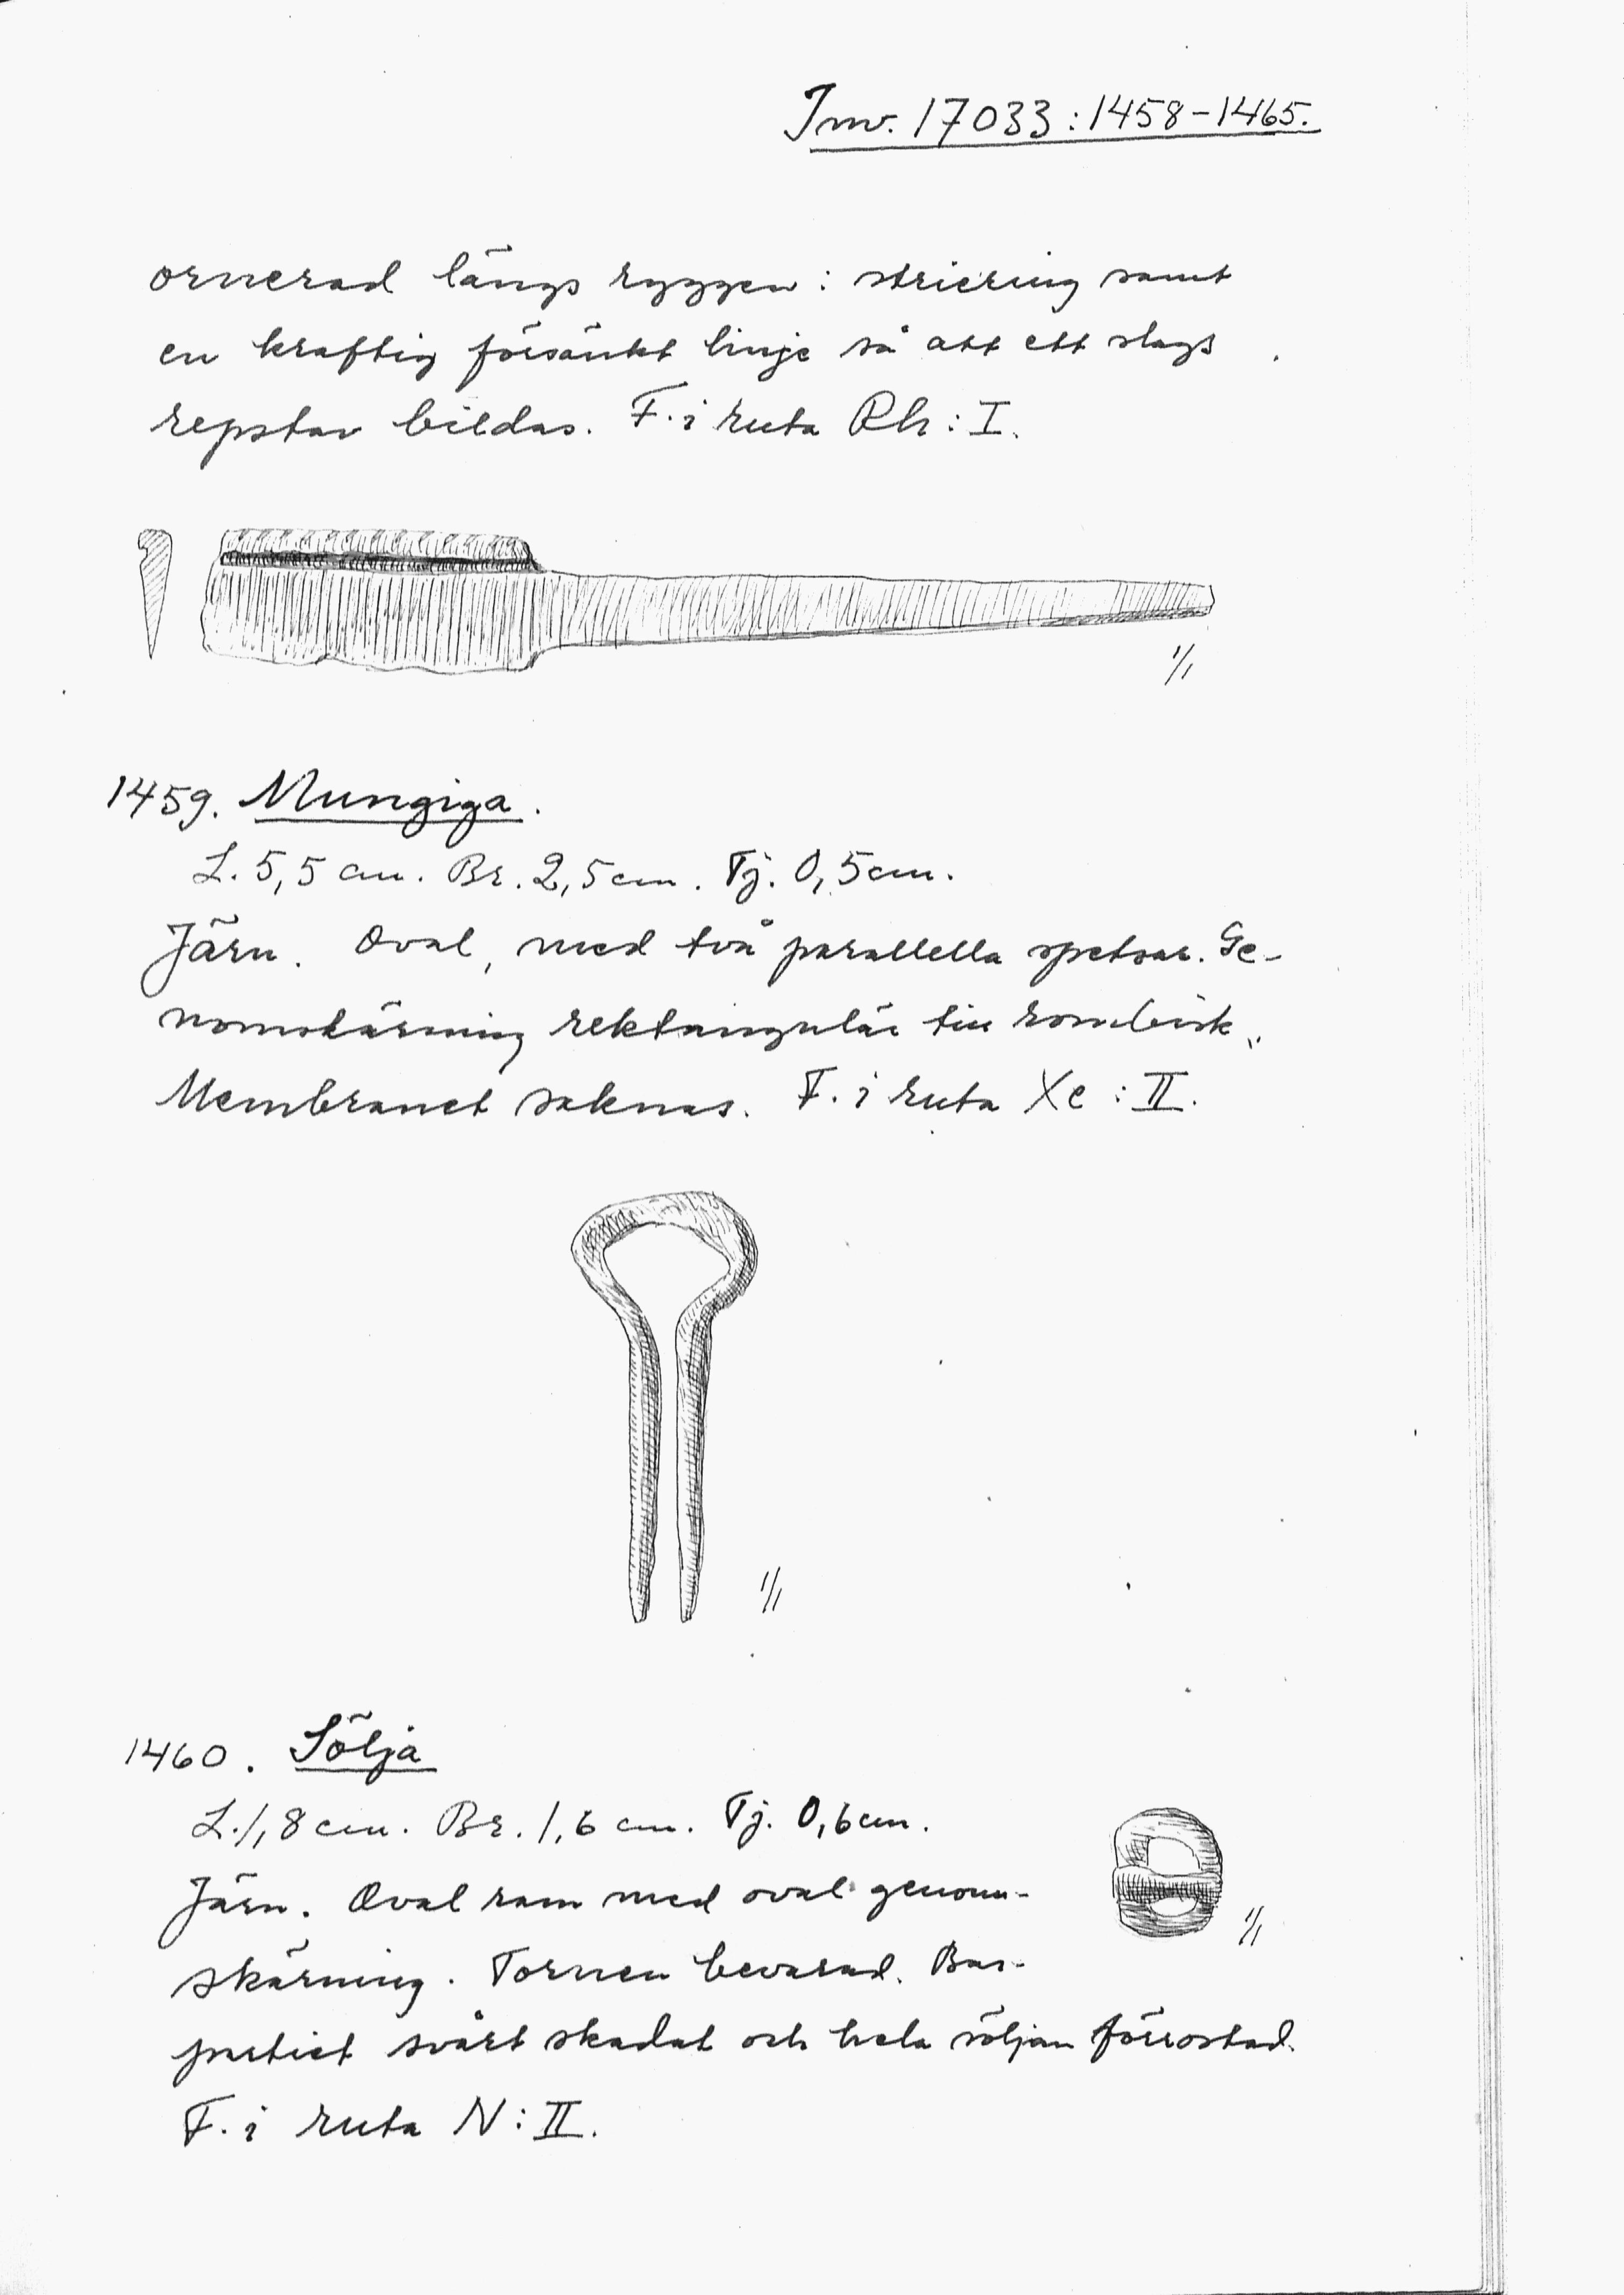 Inv. 17033:1458-1465.
ornerad längs ryggen: striering samt
en kraftig försänkt linje så att ett slags
repstav bildas. F. i ruta Rh: I.
1/1
1459. Mungiga.
L. 5,5 cm. Br. 2,5 cm. Tj. 0,5 cm.
Järn. Oval, med två parallella spetsar. Ge-
nomskärning rektangulär till rombisk.
Membranet saknas. F. i ruta Xe: II.
1/1
1460. Sölja
L. 1,8 cm. Br. 1,6 cm. Tj. 0,6 cm.
Järn. Oval ram med oval genom-
skärning. Tornen bevarad. Bas-
partiet svårt skadat och hela söljan förrostad.
1/1
F. i ruta N: II.